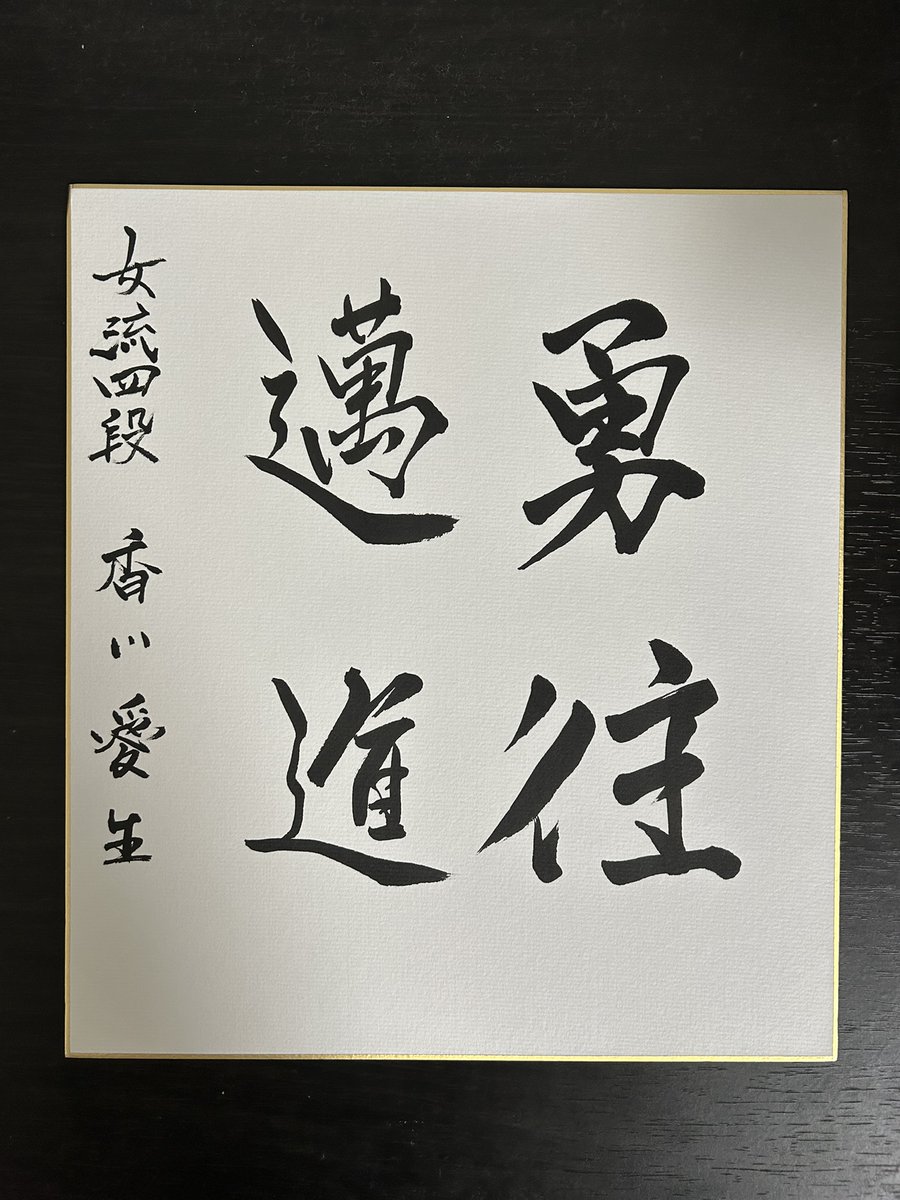 勇往
邁進
女流四段 香川愛生